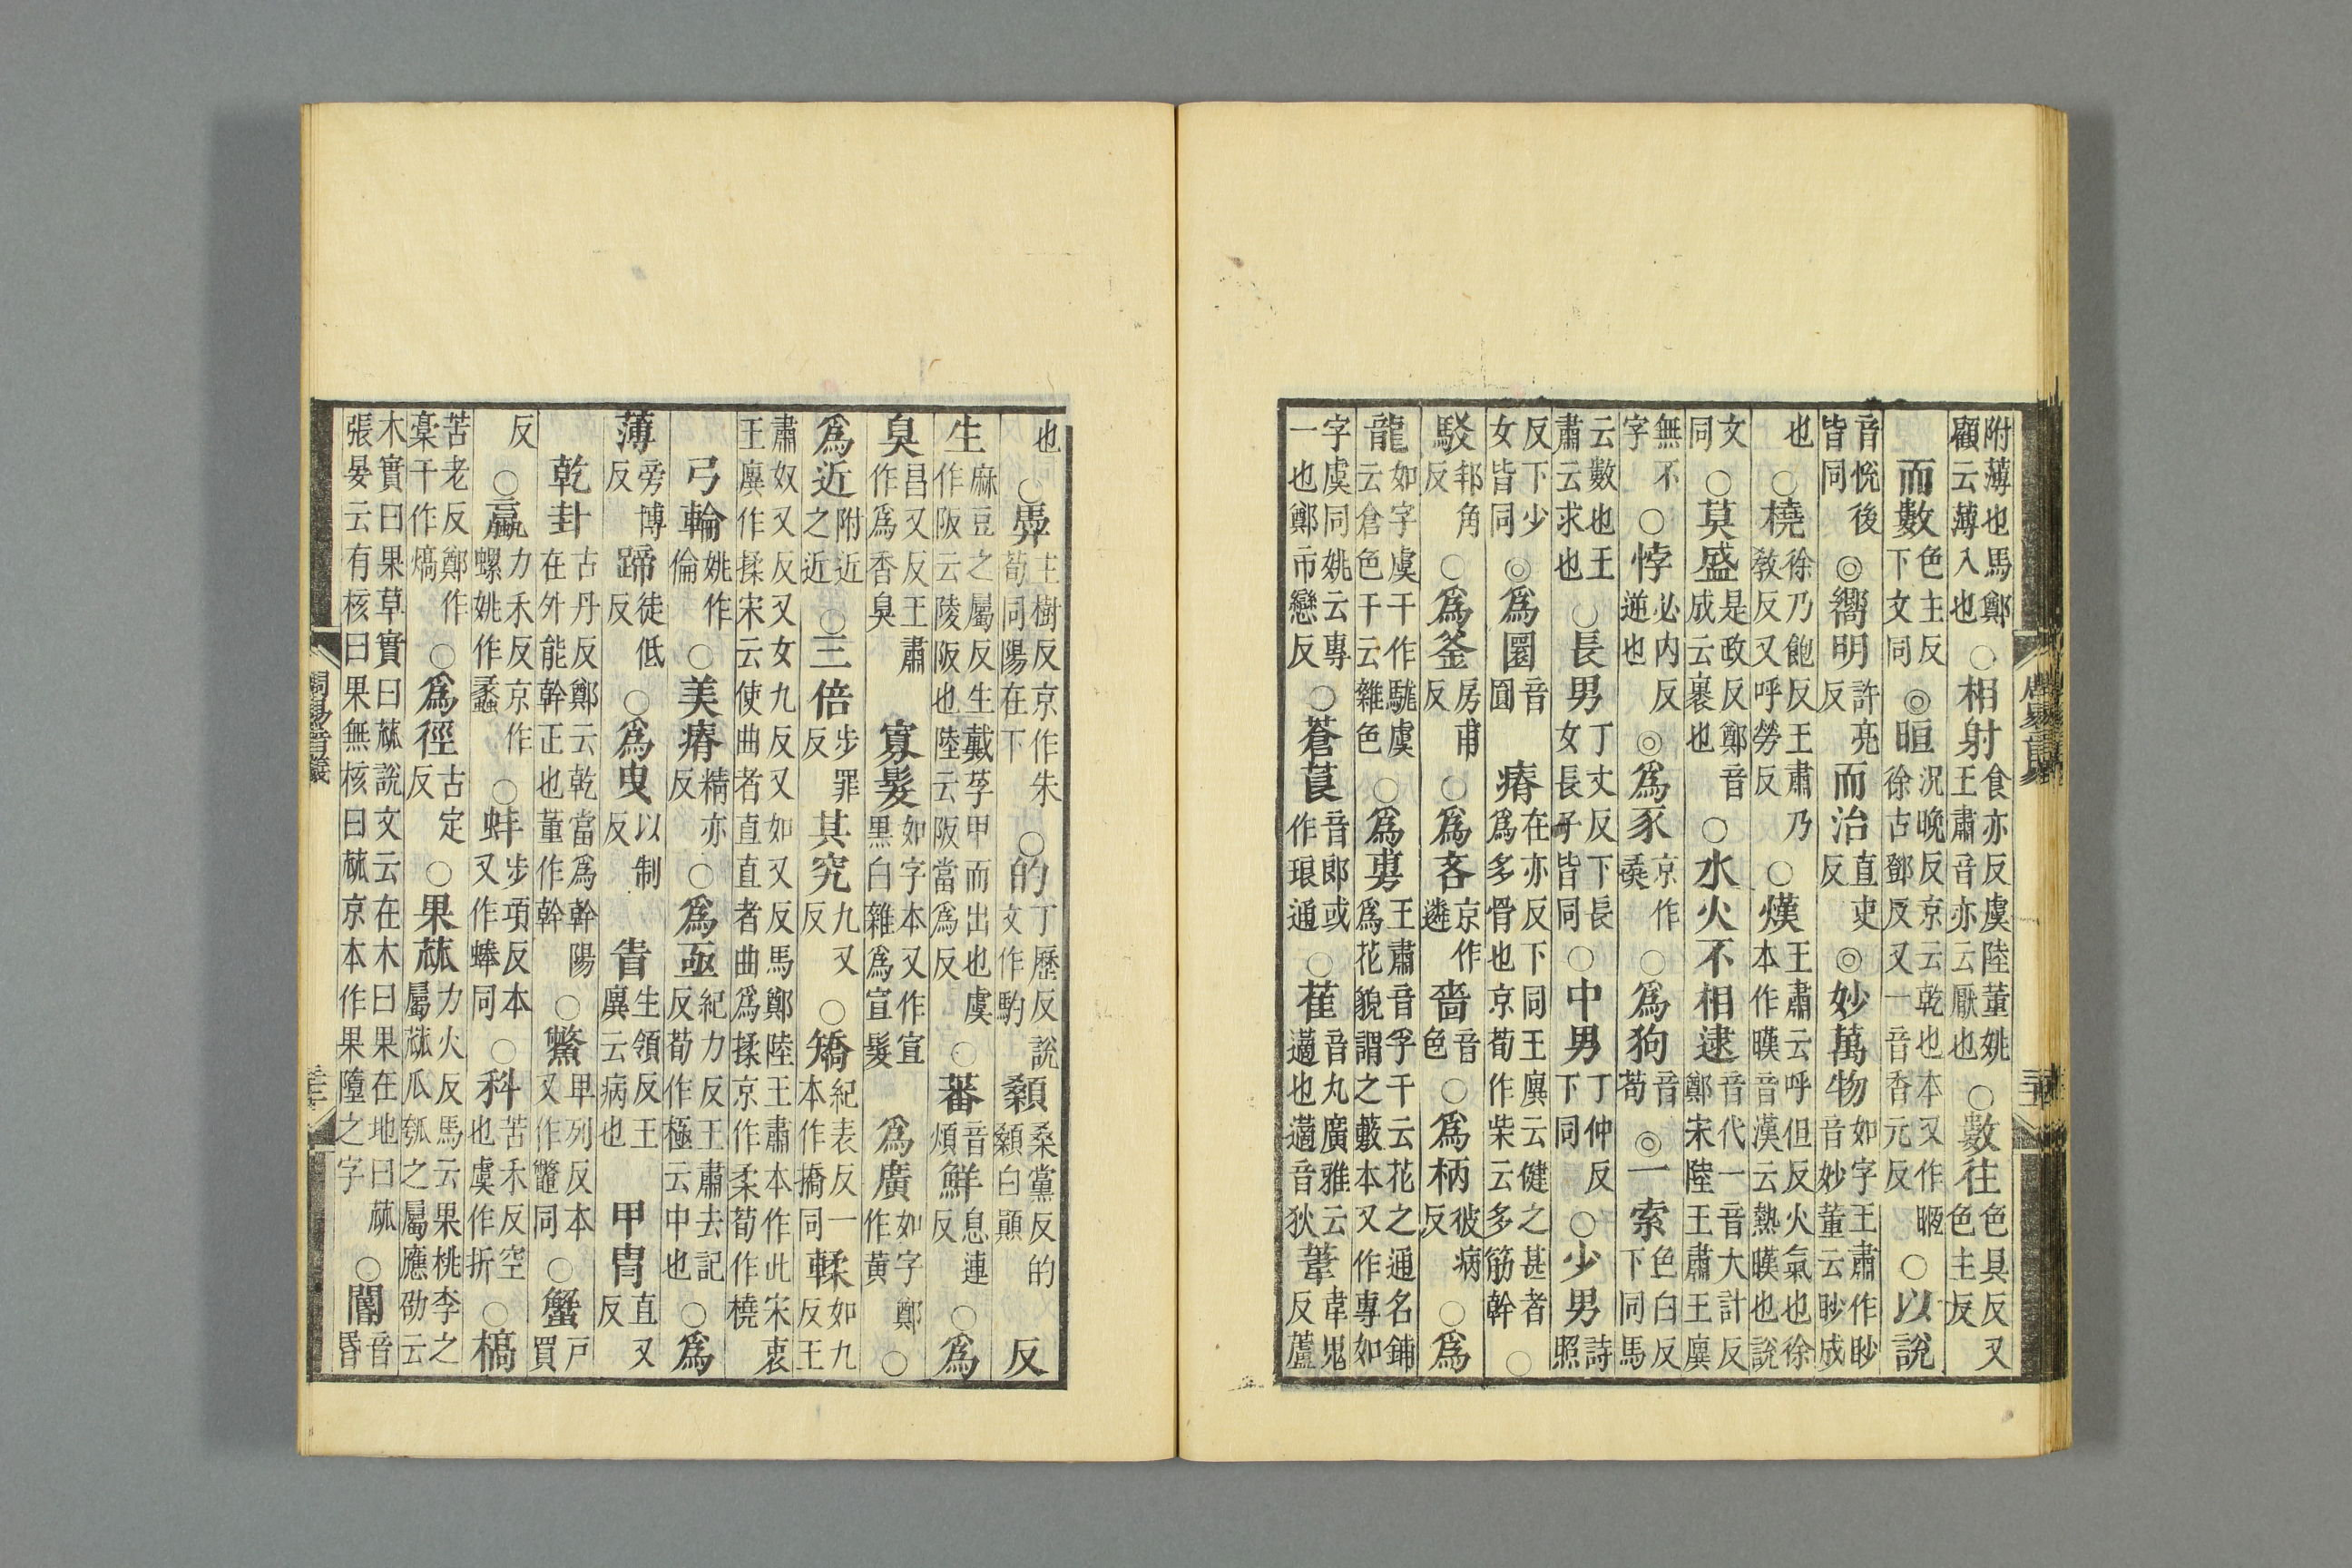 附薄也馬鄭顧云薄入也○相射食亦反虞陸董姚王肅音亦云厭也○數往色具反又色主反
而數色主反下文同◎晅況晚反京云乾也本又作暅徐古鄧反又一音香元反○以說
音悅後皆同◎嚮明許亮反而治直吏反◎妙萬物如字王肅作眇音妙董云眇成
也○橈徐乃飽反王肅乃敎反又呼勞反○熯王肅云呼但反火氣也徐本作暵音漢云熱暵也說
文同○莫盛是政反鄭音成云裹也○水火不相逮音代一音大計反鄭宋陸王肅王廙
無不字○悖必内反逆也◎爲豕京作彘○爲狗音苟◎一索色白反下同馬
云數也王肅云求也○長男丁丈反下長女長子皆同○中男丁仲反下同○少男詩照
反下少女皆同◎爲圜音圓瘠在亦反下同王廙云健之甚者爲多骨也京荀作柴云多筋幹○
駁邦角反○爲釜房甫反○爲吝京作遴嗇音色○爲柄彼病反○爲
龍如字虞干作駹虞云倉色干云雜色○爲旉王肅音孚干云花之通名鋪爲花貌謂之藪本又作專如
字虞同姚云專一也鄭市戀反○蒼莨音郎或作琅通○萑音丸廣雅云藡也藡音狄葦韋鬼反蘆
也○馵主樹反京作朱荀同陽在下○的丁歷反說文作馰顙桑黨反的顙白顚反
生麻豆之屬反生戴莩甲而出也虞作阪云陵阪也陸云阪當爲反○蕃音煩鮮息連反○爲
臭昌又反王肅作爲香臭寡髮如字本又作宣黑白雜爲宣髮爲廣如字鄭作黃○
爲近附近之近○三倍步罪反其究九又反○矯紀表反一本作撟同輮如九反王
肅奴又反又女九反又如又反馬鄭陸王肅本作此宋衷王廙作揉宋云使曲者直直者曲爲揉京作柔荀作橈
弓輪姚作倫○美瘠精亦反○爲亟紀力反王肅去記反荀作極云中也○爲
薄旁博反蹄徒低反○爲曳以制反眚生領反王廙云病也甲冑直又反
乾卦古丹反鄭云乾當爲幹陽在外能幹正也董作幹○鱉卑列反本又作鼈同○蟹戸買
反○蠃力禾反京作螺姚作蠡○蚌步項反本又作蜯同○科苦禾反空也虞作折○槁
苦老反鄭作稾干作熇○爲徑古定反○果蓏力火反馬云果桃李之屬蓏瓜瓠之屬應劭云
木實曰果草實曰蓏說文云在木曰果在地曰蓏張晏云有核曰果無核曰蓏京本作果墮之字○閽音昏
周易音義